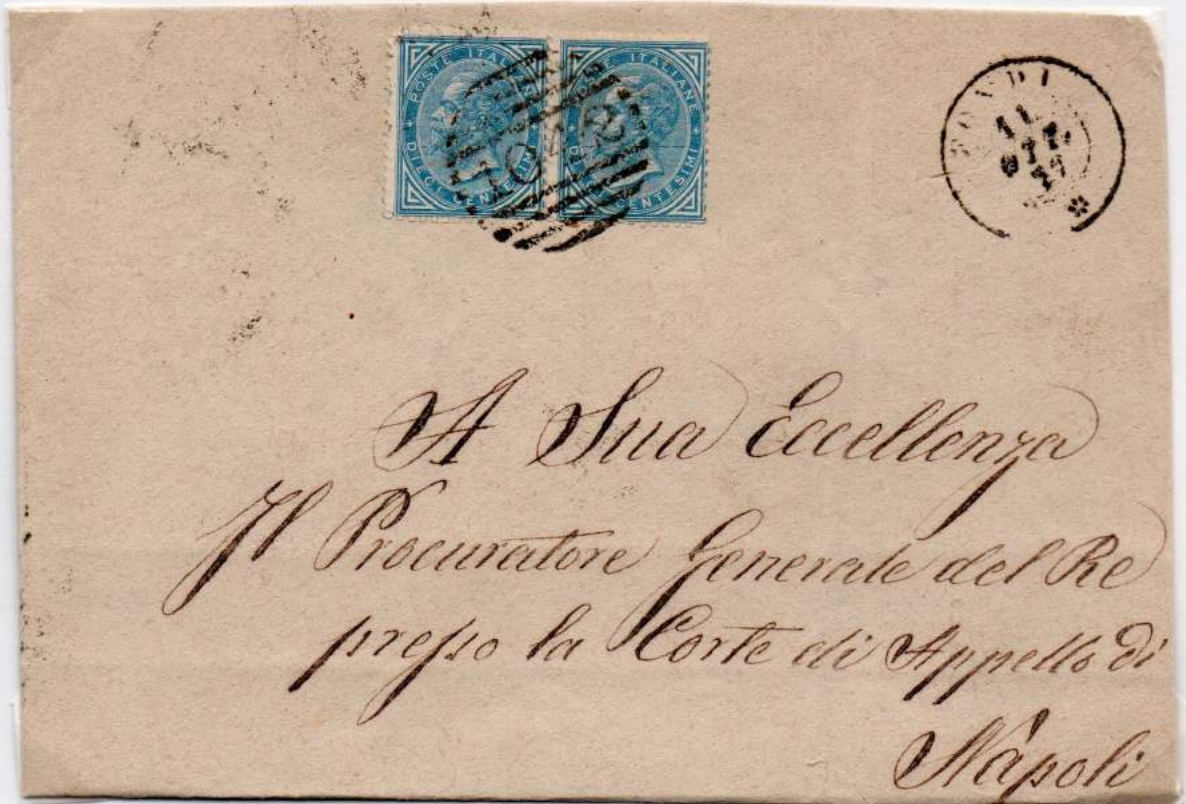 POSTE ITALIANE
DIECI CENTESIMI
ITALIANE
CENTESIMI
FONDI
11
OTT
77
A Sua Eccellenza
Il Procuratore Generale del Re
presso la Corte di Appello di
Napoli